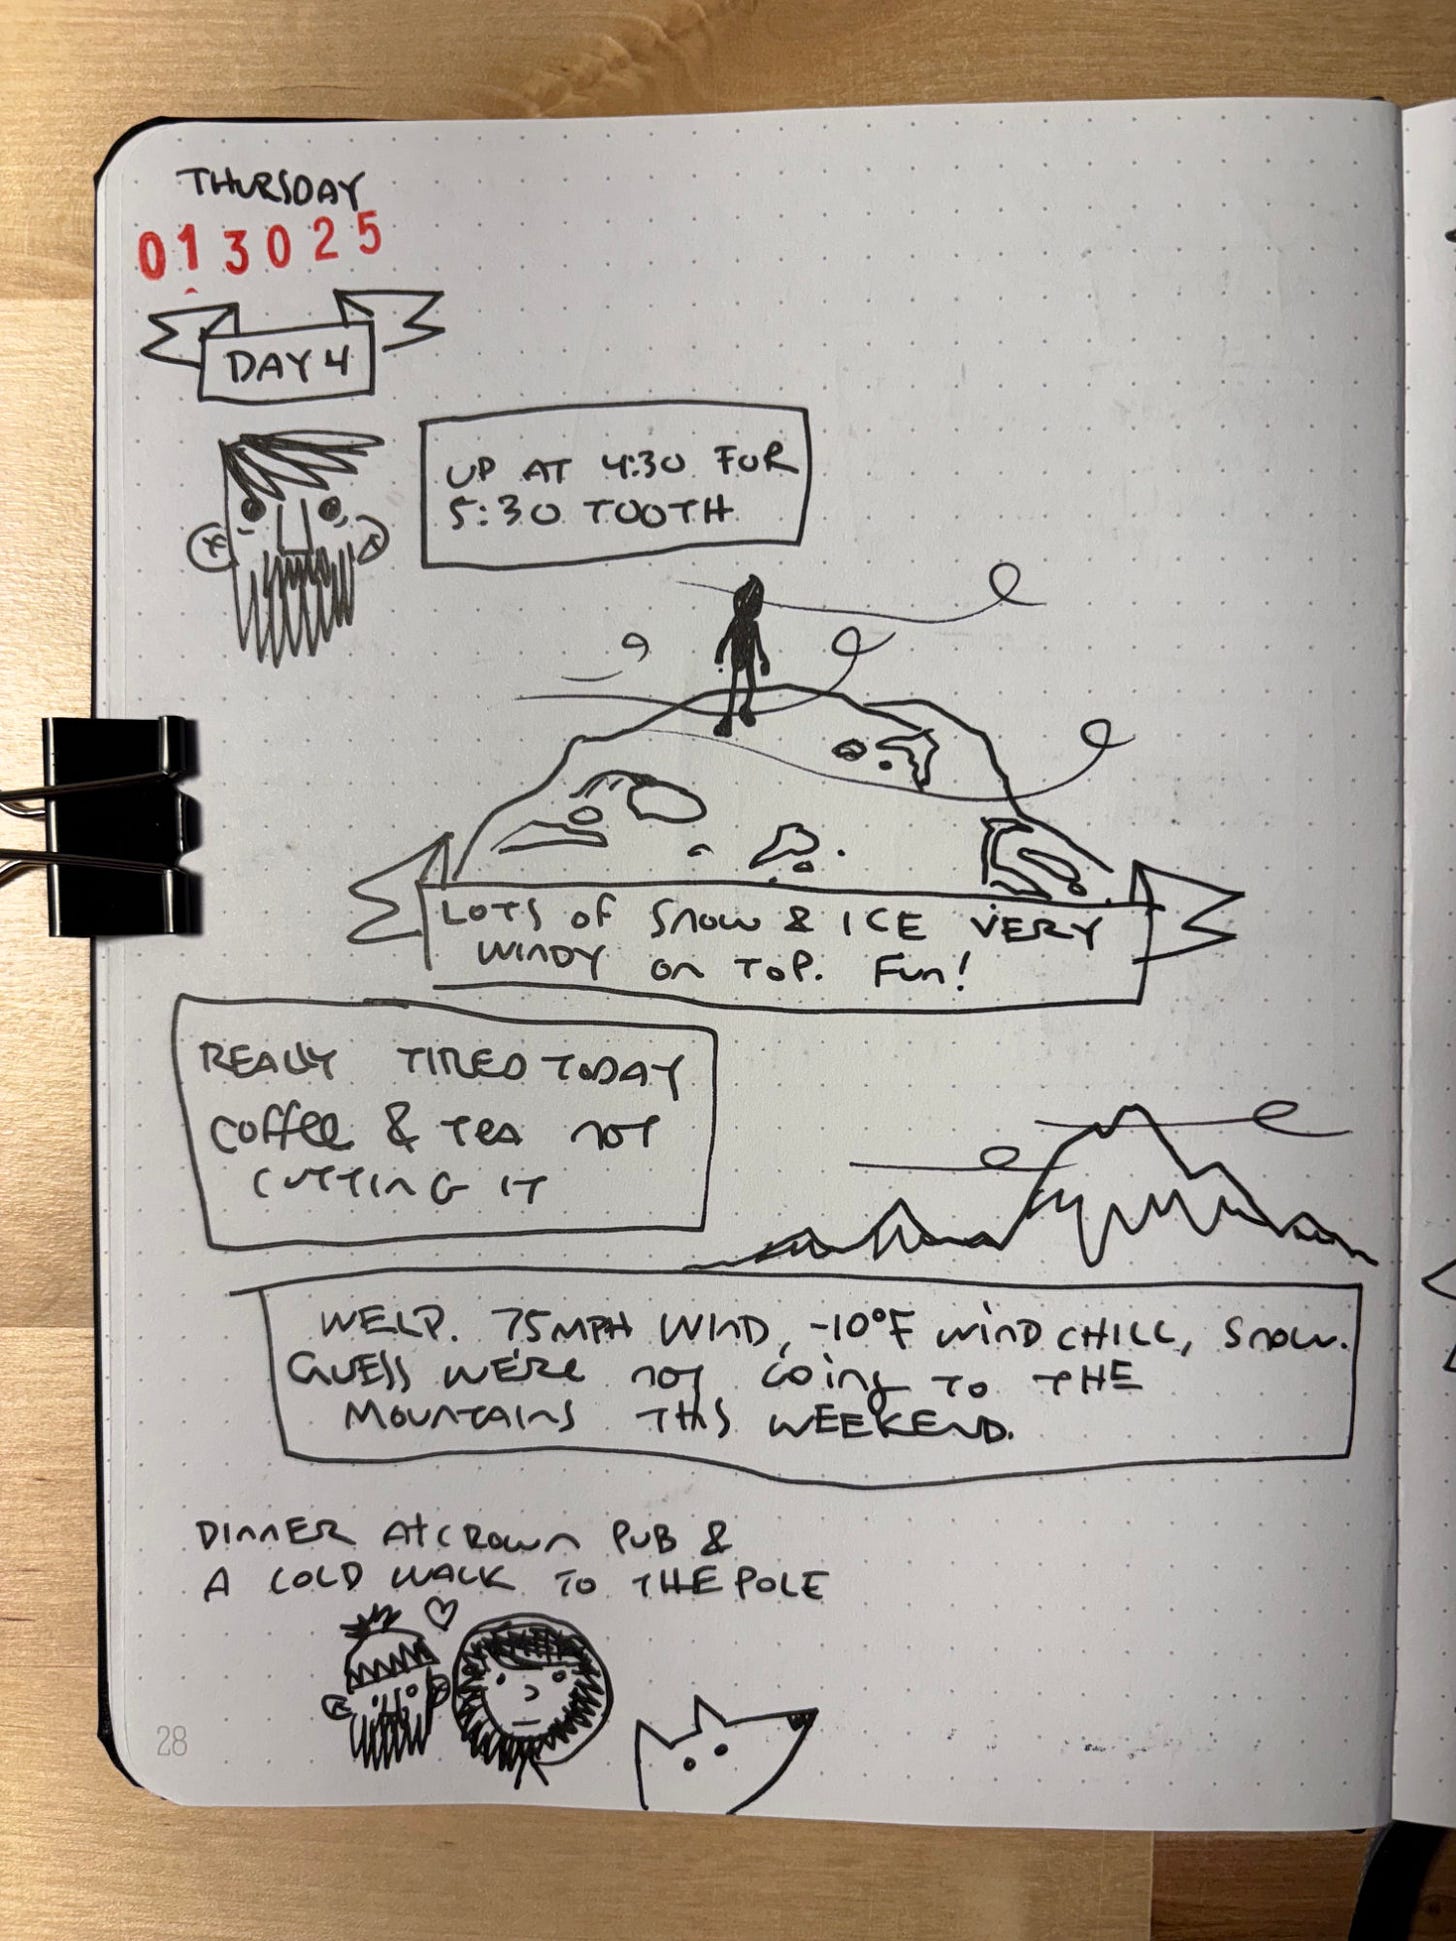 THURSDAY
013025
DAY 4
UP AT 4:30 FOR
5:30 TOOTH
LOTS OF SNOW & ICE VERY
WINDY ON TOP. FUN!
REALLY TIRED TODAY
COFFEE & TEA NOT
CUTTING IT
WELP. 75MPH WIND, -10°F WIND CHILL, SNOW.
GUESS WE'RE NOT GOING TO THE
MOUNTAINS THIS WEEKEND.
DINNER AT CROWN PUB &
A COLD WALK TO THE POLE
28